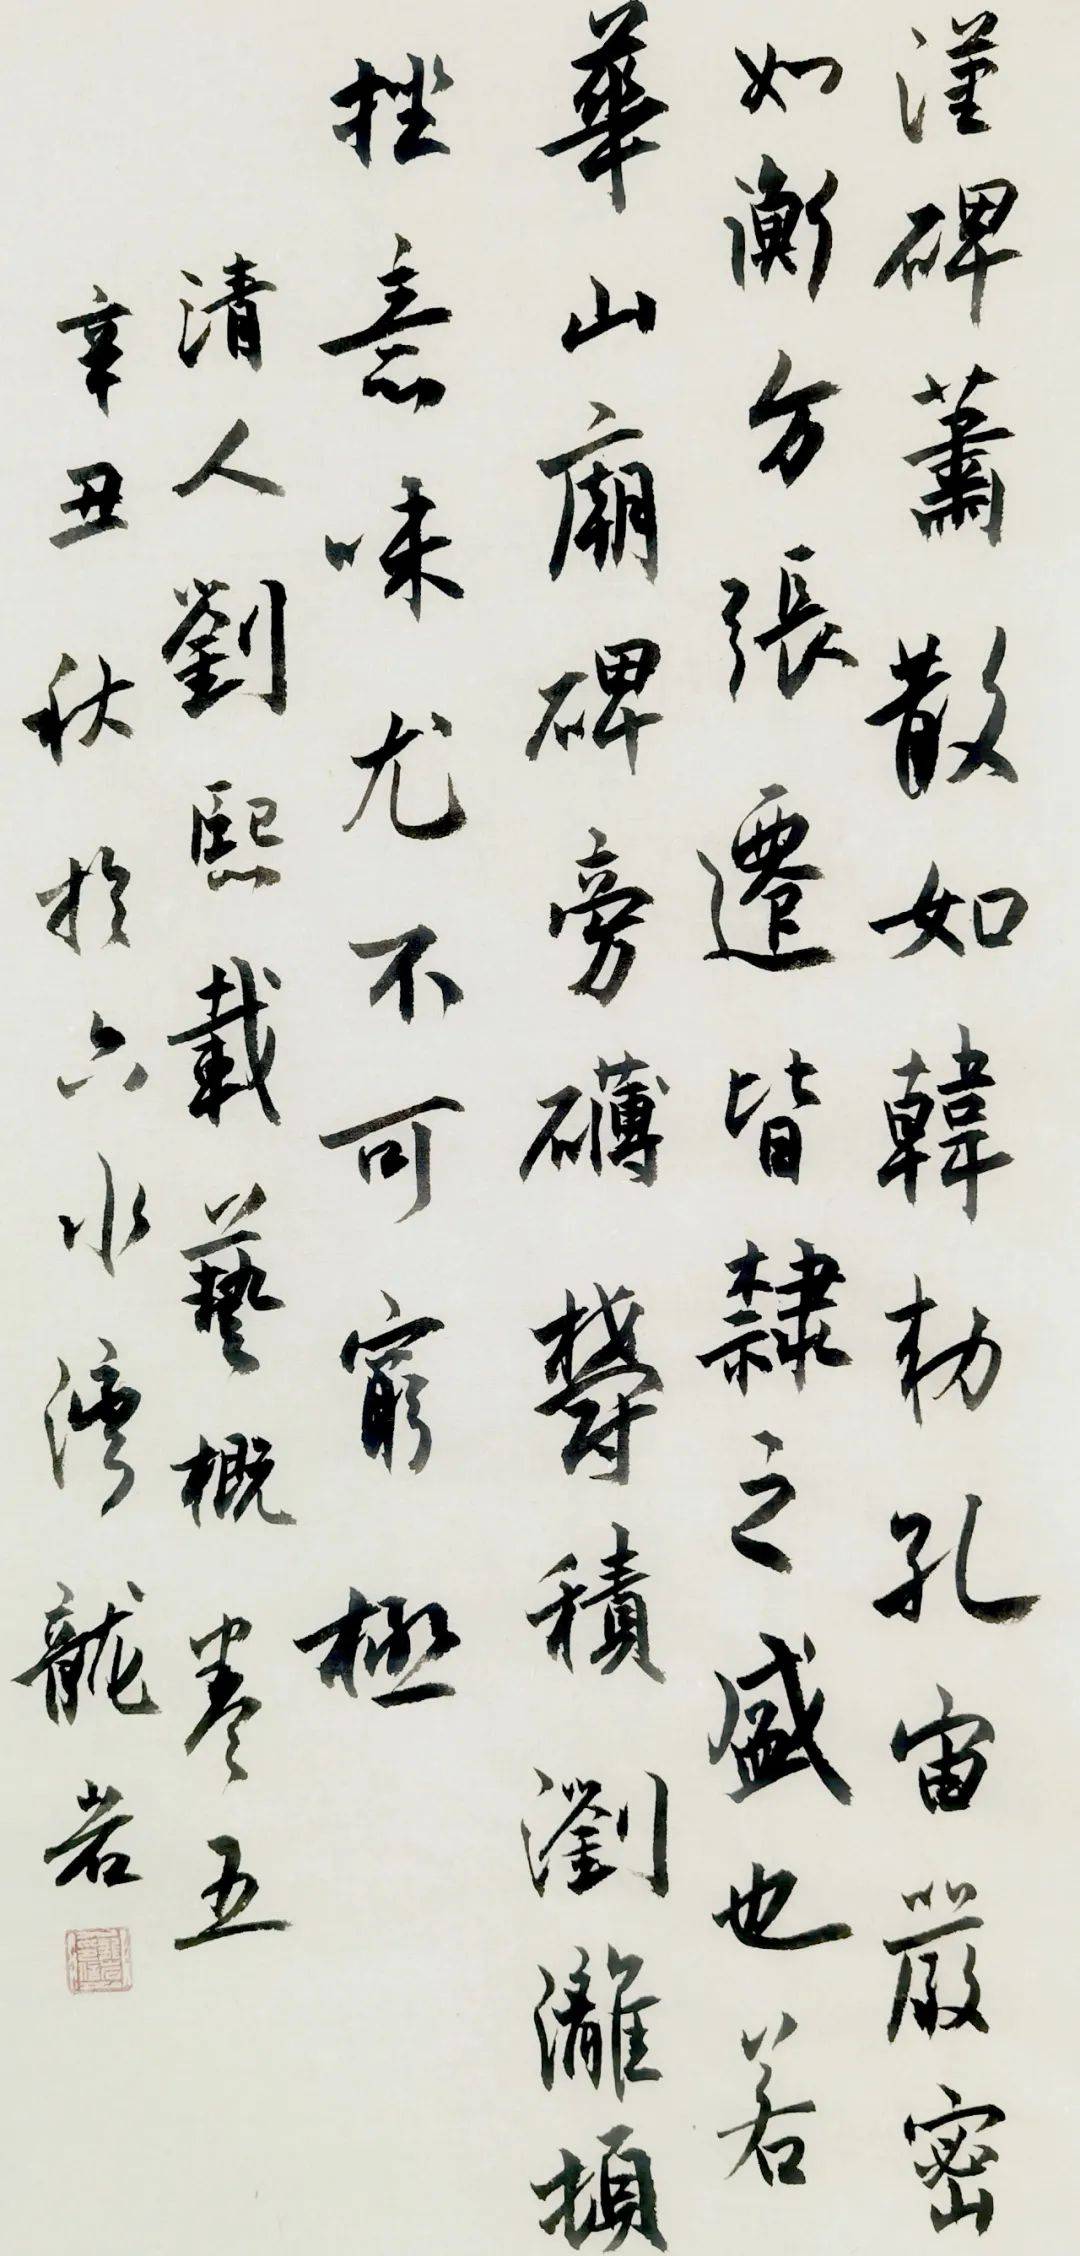 漢碑蕭散如韓勑孔宙嚴密
如衡方張遷皆隸之盛也若
華山廟碑旁礴鬱積瀏灕頓
挫意味尤不可窮極
清人劉熙載藝概卷五
辛丑秋於六水灣龍岩